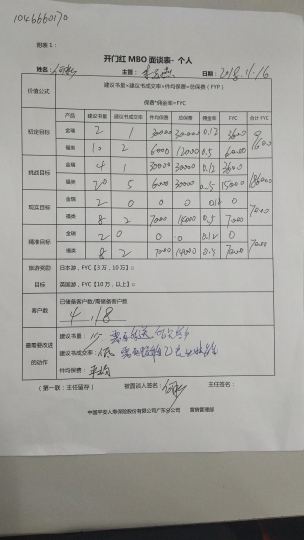 1046660170
附表1：
开门红 MBO 面谈表- 个人
姓名： 主管： 日期：2018.11.16
价值公式 建议书量×建议书成交率=件均保费×总保费（FYP）
保费*佣金率=FYC
产品 建议书量 建议书成交率 件均保费 总保费 佣金率 FYC 合计FYC
初定目标 金瑞 2 1 30000 30000 0.12 3600 9600
福类 10 2 6000 12000 0.5 6000
挑战目标 金瑞 4 1 30000 30000 0.12 3600 18600
福类 20 5 6000 30000 0.5 15000
现实目标 金瑞 2 0 0 0 0.12 0 7000
福类 8 2 7000 14000 0.5 7000
精准目标 金瑞 2 0 0 0 0.12 0 7000
福类 8 2 7000 14000 0.5 7000
旅游奖励 日本游，FYC【3万，10万】□
目标 英国游，FYC【10万，以上】□
客户数 已储备客户数/需储备客户数
4 . 18
最需要改进的动作 建议书量：少
建议书成交率：低
件均保费：平均
（第一联：主任留存） 被面谈人签名： 主任签名：
中国平安人寿保险股份有限公司广东分公司 营销管理部